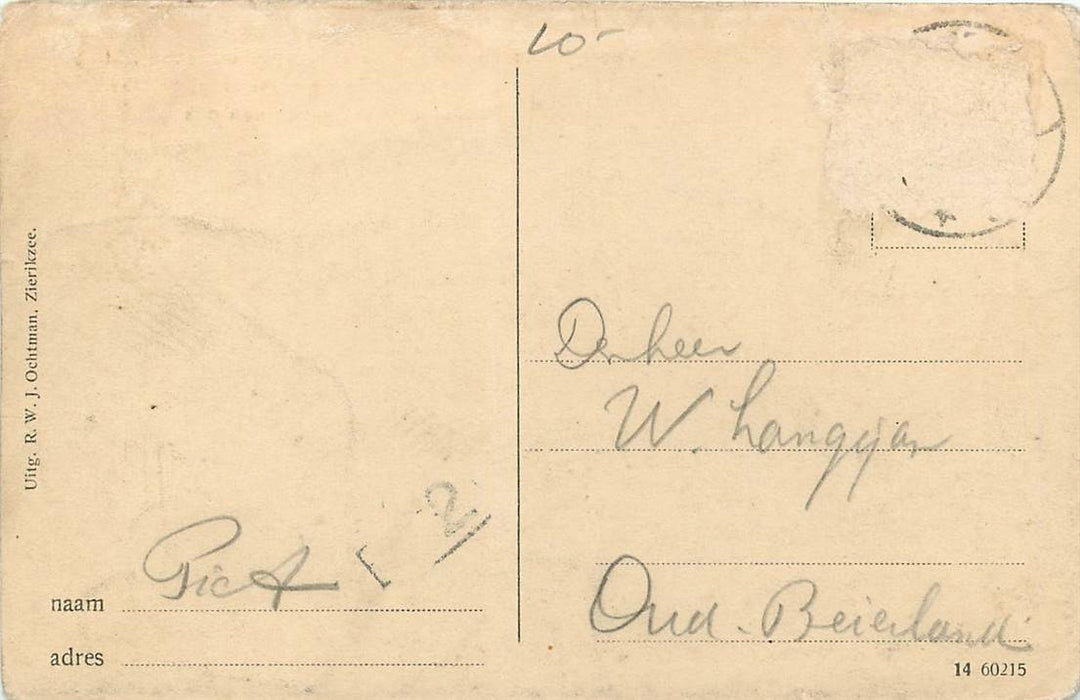 10-
Uitg. R. W. J. Ochtman, Zierikzee.
Den heer
W. Langejan
Oud-Beierland
Piet
2
naam
adres
14 60215